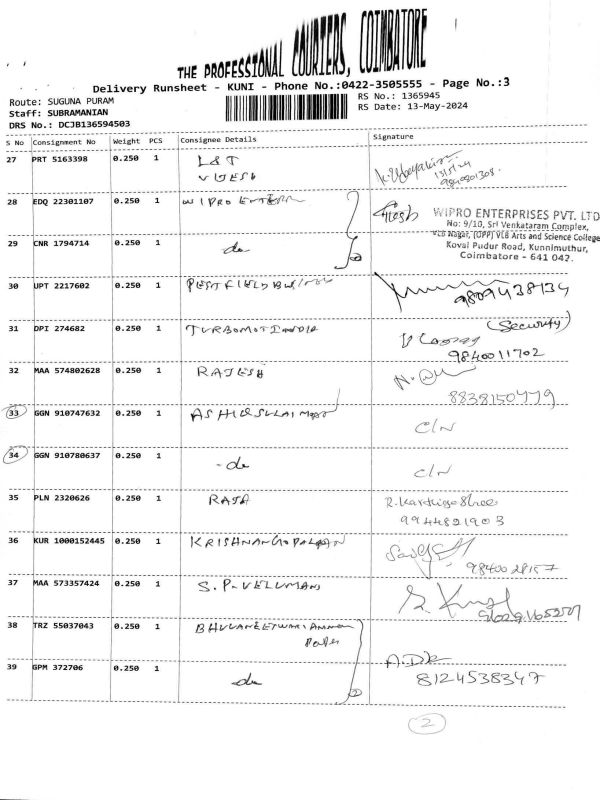 THE PROFESSIONAL COURIERS, COIMBATORE
Delivery Runsheet - KUNI - Phone No.:0422-3505555 - Page No.:3
Route: SUGUNA PURAM RS No.: 1365945
Staff: SUBRAMANIAN RS Date: 13-May-2024
DRS No.: DCJB136594503
S No Consignment No Weight PCS Consignee Details Signature
27 PRT 5163398 0.250 1 L&T
VIJESH
28 EDQ 22301107 0.250 1 WIPRO
WIPRO ENTERPRISES PVT. LTD
No: 9/10, Sri Venkataram Complex,
VLB Nagar, (OPP) VLB Arts and Science College
Kovai Pudur Road, Kunnimuthur,
Coimbatore - 641 042.
29 CNR 1794714 0.250 1 do
30 UPT 2217602 0.250 1 9809438134
31 DPI 274682 0.250 1 (Security)
9840011702
32 MAA 574802628 0.250 1 RAJESH
8838150779
33 GGN 910747632 0.250 1 C/N
34 GGN 910780637 0.250 1 - do C/N
35 PLN 2320626 0.250 1 RAJA R. Karthiga Shree
9944821903
36 KUR 1000152445 0.250 1 KRISHNAN GOPALAN
37 MAA 573357424 0.250 1 S.P. VELUMANI
38 TRZ 55037043 0.250 1
39 GPM 372706 0.250 1 - do 8124538347
2